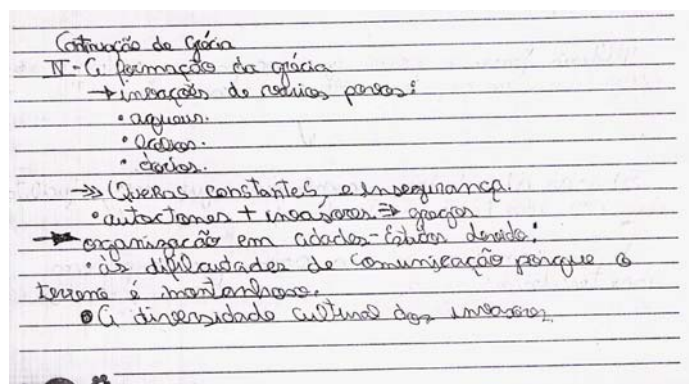 Continuação da Grécia
IV - A formação da grécia
→ invasões de vários povos:
• aqueus.
• eólios.
• dórios.
→» Guerras constantes e insegurança.
• autoctones + invasores ⇒ gregos
→ organização em cidades-Estados devido:
• às dificuldades de comunicação porque o
terreno é montanhoso.
• A diversidade cultural dos invasores